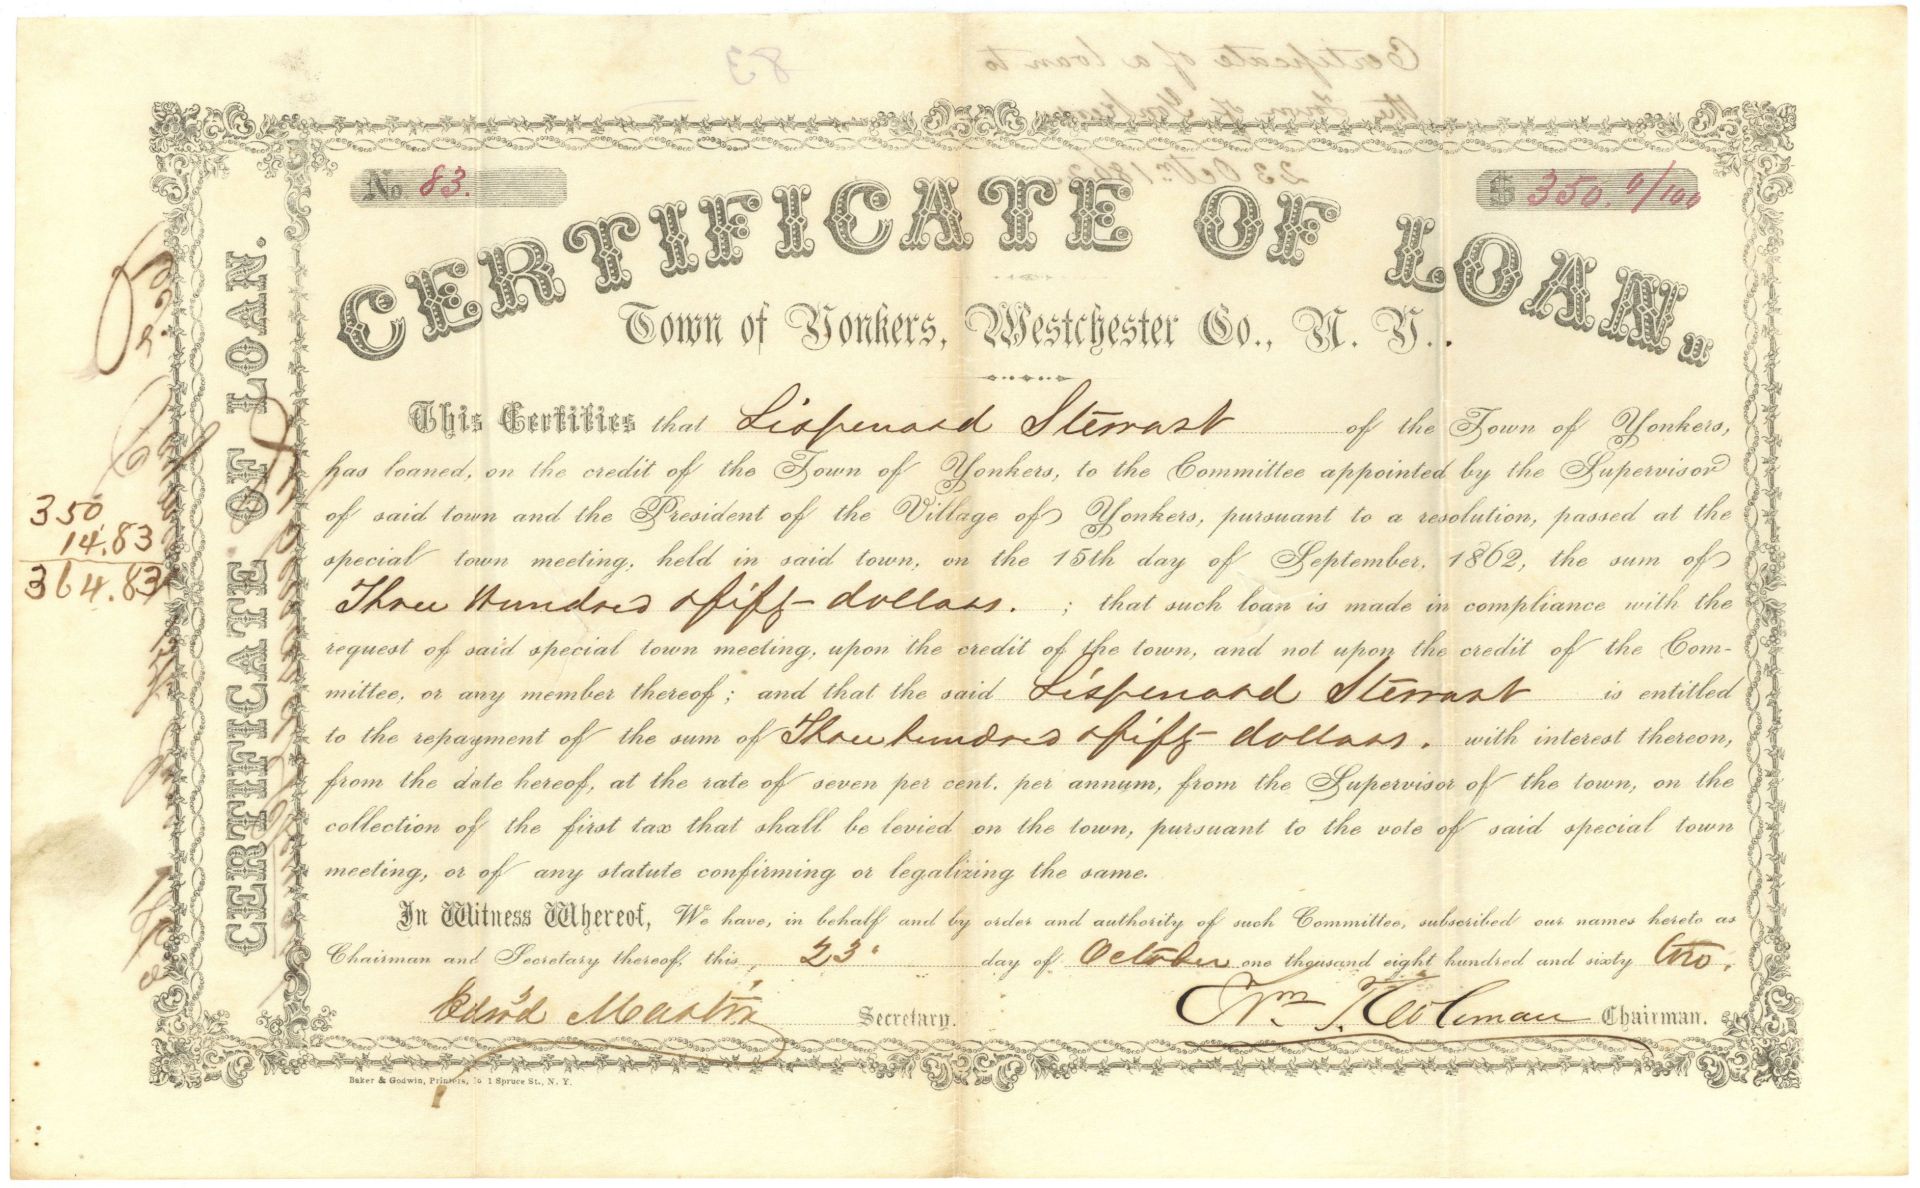 Certificate of a loan to
83
the Town of Yonkers
23 Octr. 1862
No. 83.
$ 350. 0/100
CERTIFICATE OF LOAN.
Town of Yonkers, Westchester Co., N. Y.
This Certifies that Lispenard Stewart of the Town of Yonkers,
has loaned, on the credit of the Town of Yonkers, to the Committee appointed by the Supervisor
of said town and the President of the Village of Yonkers, pursuant to a resolution, passed at the
special town meeting, held in said town, on the 15th day of September, 1862, the sum of
Three Hundred & fifty dollars. ; that such loan is made in compliance with the
request of said special town meeting, upon the credit of the town, and not upon the credit of the Com-
mittee, or any member thereof; and that the said Lispenard Stewart is entitled
to the repayment of the sum of Three hundred & fifty dollars. with interest thereon,
from the date hereof, at the rate of seven per cent. per annum, from the Supervisor of the town, on the
collection of the first tax that shall be levied on the town, pursuant to the vote of said special town
meeting, or of any statute confirming or legalizing the same.
In Witness Whereof, We have, in behalf and by order and authority of such Committee, subscribed our names hereto as
Chairman and Secretary thereof, this 23d day of October one thousand eight hundred and sixty two.
Edwd Martin Secretary.
Wm Chairman.
Baker & Godwin, Printers, No 1 Spruce St., N. Y.
CERTIFICATE OF LOAN.
350
14.83
364.83